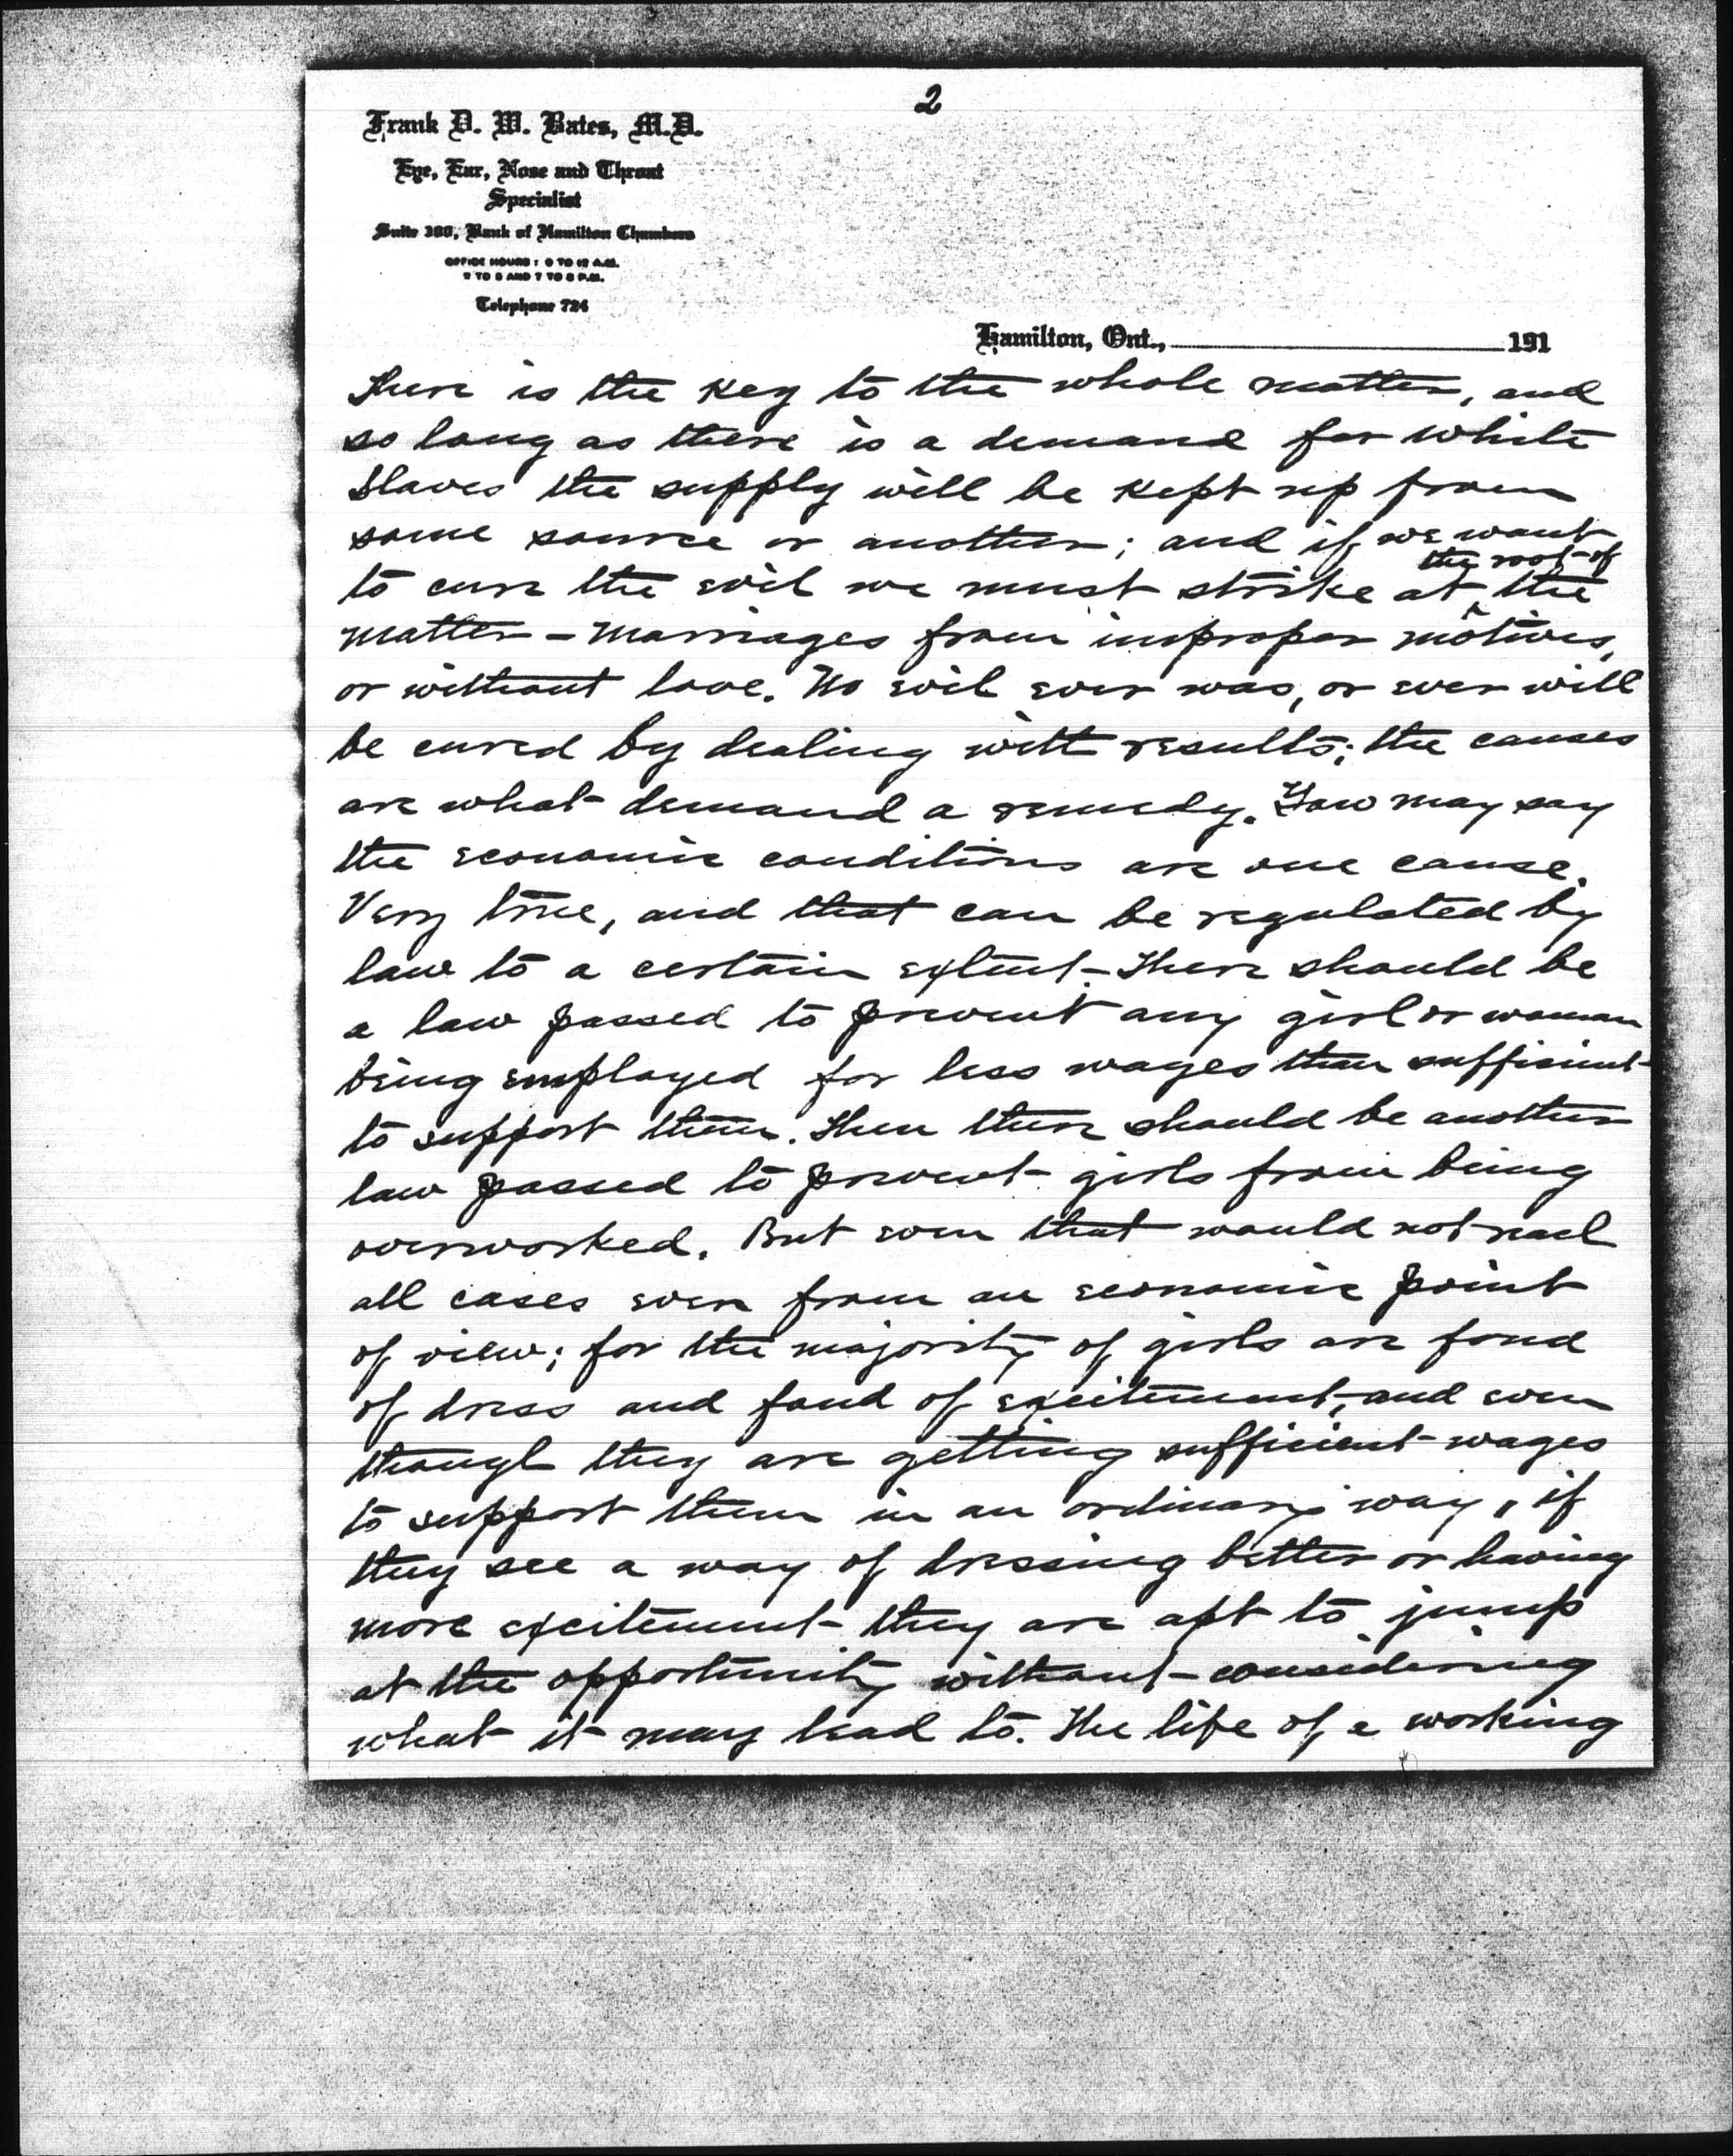 2
Frank D. W. Bates, M.D.
Eye, Ear, Nose and Throat
Specialist
Suite 306, Bank of Hamilton Chambers
OFFICE HOURS: 9 TO 12 A.M.
2 TO 5 AND 7 TO 8 P.M.
Telephone 724
Hamilton, Ont., 191
There is the key to the whole matter, and
so long as there is a demand for white
slaves the supply will be kept up from
some source or another; and if we want
the root of
to cure the evil we must strike at ^ the
matter - marriages from improper motives,
or without love. No evil ever was, or ever will
be cured by dealing with results; the causes
are what demand a remedy. You may say
the economic conditions are one cause.
Very true, and that can be regulated by
law to a certain extent. There should be
a law passed to prevent any girl or woman
being employed for less wages than sufficient
to support them. Then there should be another
law passed to prevent girls from being
overworked. But even that would not reach
all cases even from an economic point
of view; for the majority of girls are fond
of dress and fond of excitement, and even
though they are getting sufficient wages
to support them in an ordinary way, if
they see a way of dressing better or having
more excitement they are apt to jump
at the opportunity without considering
what it may lead to. The life of a working